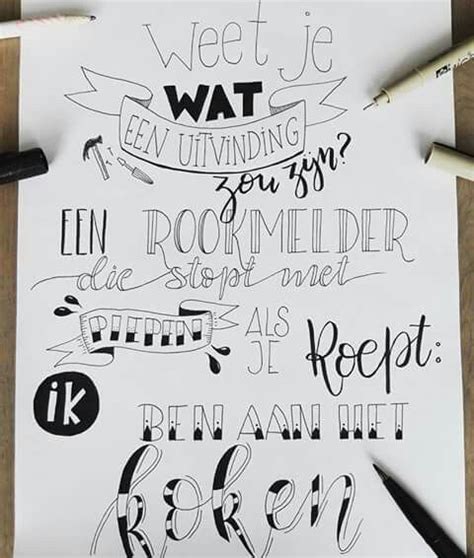 Weet je
WAT
EEN UITVINDING
zou zijn?
EEN ROOKMELDER
die stopt met
PIEPEN ALS JE Roept:
ik BEN AAN HET
koken